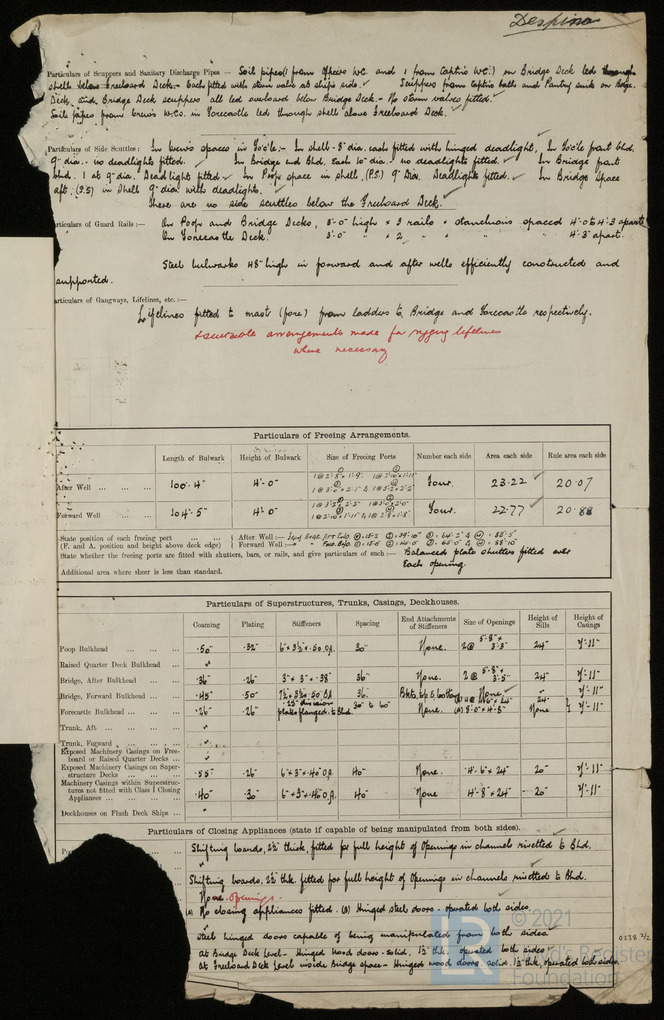 Despina
Particulars of Scuppers and Sanitary Discharge Pipes — Soil pipes (1 from Officers W.C. and 1 from Captn's W.C.) on Bridge Deck led through
shells below Freeboard Deck. - Each fitted with storm valve at ship's side. Scuppers from Captn's bath and Pantry sink on Bdge.
Deck, and Bridge Deck scuppers all led overboard below Bridge Deck. - No storm valves fitted.
Soil pipes from crew's W.Cs. in Forecastle led through shell above Freeboard Deck.
Particulars of Side Scuttles: In crew's spaces in Fo'c'le: - In shell - 8" dia. each fitted with hinged deadlight, In Fo'c'le front bhd.
9" dia. - no deadlights fitted. In Bridge end Bhd. Each 10" dia. - no deadlights fitted. In Bridge front
bhd. 1 at 9" dia. Deadlight fitted In Poop space in shell, (P.S) 9" Dia. Deadlights fitted. In Bridge Space
aft. (P.S) in Shell 9" dia with deadlights.
There are no side scuttles below the Freeboard Deck.
articulars of Guard Rails:— On Poop and Bridge Decks, 3'-0" high × 3 rails × stanchions spaced 4'-0" to 4'-3" apart
On Forecastle Deck. 3'-0" " × 2 " " " 4'-3" apart.
Steel bulwarks 48" high in forward and after wells efficiently constructed and
supported.
articulars of Gangways, Lifelines, etc.:—
Lifelines fitted to mast (fore) from ladders to Bridge and Forecastle respectively.
& suitable arrangements made for rigging lifelines
where necessary
Particulars of Freeing Arrangements.
Length of Bulwark Height of Bulwark Size of Freeing Ports Number each side Area each side Rule area each side
After Well 100'.4" 4'-0" Four. 23.22 20.07
Forward Well 104'.5" 4'-0" Four. 22.77 20.88
State position of each freeing port After Well :—
(F. and A. position and height above deck edge) Forward Well :—
State whether the freeing ports are fitted with shutters, bars, or rails, and give particulars of such :— Balanced plate shutters fitted over
Each opening.
Additional area where sheer is less than standard.
Particulars of Superstructures, Trunks, Casings, Deckhouses.
Coaming Plating Stiffeners Spacing End Attachments of Stiffeners Size of Openings Height of Sills Height of Casings
Poop Bulkhead .50" .32" 6" × 3½" × .50 O.A. 30" None. 2 @ 5'-8" × 3'.3" 24" 7'-11"
Raised Quarter Deck Bulkhead "
Bridge, After Bulkhead .36" .26" 3" × 3" × .38" 36" None. 2 @ 5'-8" × 3'.5" 24" 7'-11"
Bridge, Forward Bulkhead .45" .50" 7½ × 3½ × .50 B.A 36" Bkts. top & bottom None. " 7'-11"
Forecastle Bulkhead .26" .26" .25" division plates flanged to Bhd. 30" to 60" None. (B) 5'-0" × 4'-8" None 7'-11"
Trunk, Aft "
Trunk, Forward "
Exposed Machinery Casings on Freeboard or Raised Quarter Decks "
Exposed Machinery Casings on Superstructure Decks .55" .26" 6" × 3" × .40" O.A 40" None. 4'-6" × 24" 20" 7'-11"
Machinery Casings within Superstructures not fitted with Class I Closing Appliances .40" .30" 6" × 3" × .40 O.A. 40" None 4'-8" × 24" 20" 7'-11"
Deckhouses on Flush Deck Ships "
Particulars of Closing Appliances (state if capable of being manipulated from both sides).
Shifting boards, 2½" thick, fitted for full height of Openings in channels rivetted to Bhd.
"
Shifting boards, 2½" thk. fitted for full height of Openings in channels rivetted to Bhd.
None. openings.
(A) No closing appliances fitted. (B) Hinged steel doors - operated both sides.
"
Steel hinged doors capable of being manipulated from both sides
at Bridge Deck level - Hinged Wood doors - solid. 1½" thk. operated both sides
At Freeboard Deck level inside Bridge space - Hinged wood doors solid. 1½" thk, operated both sides
© 2021
Lloyd's Register
Foundation
LR
0238 2/2